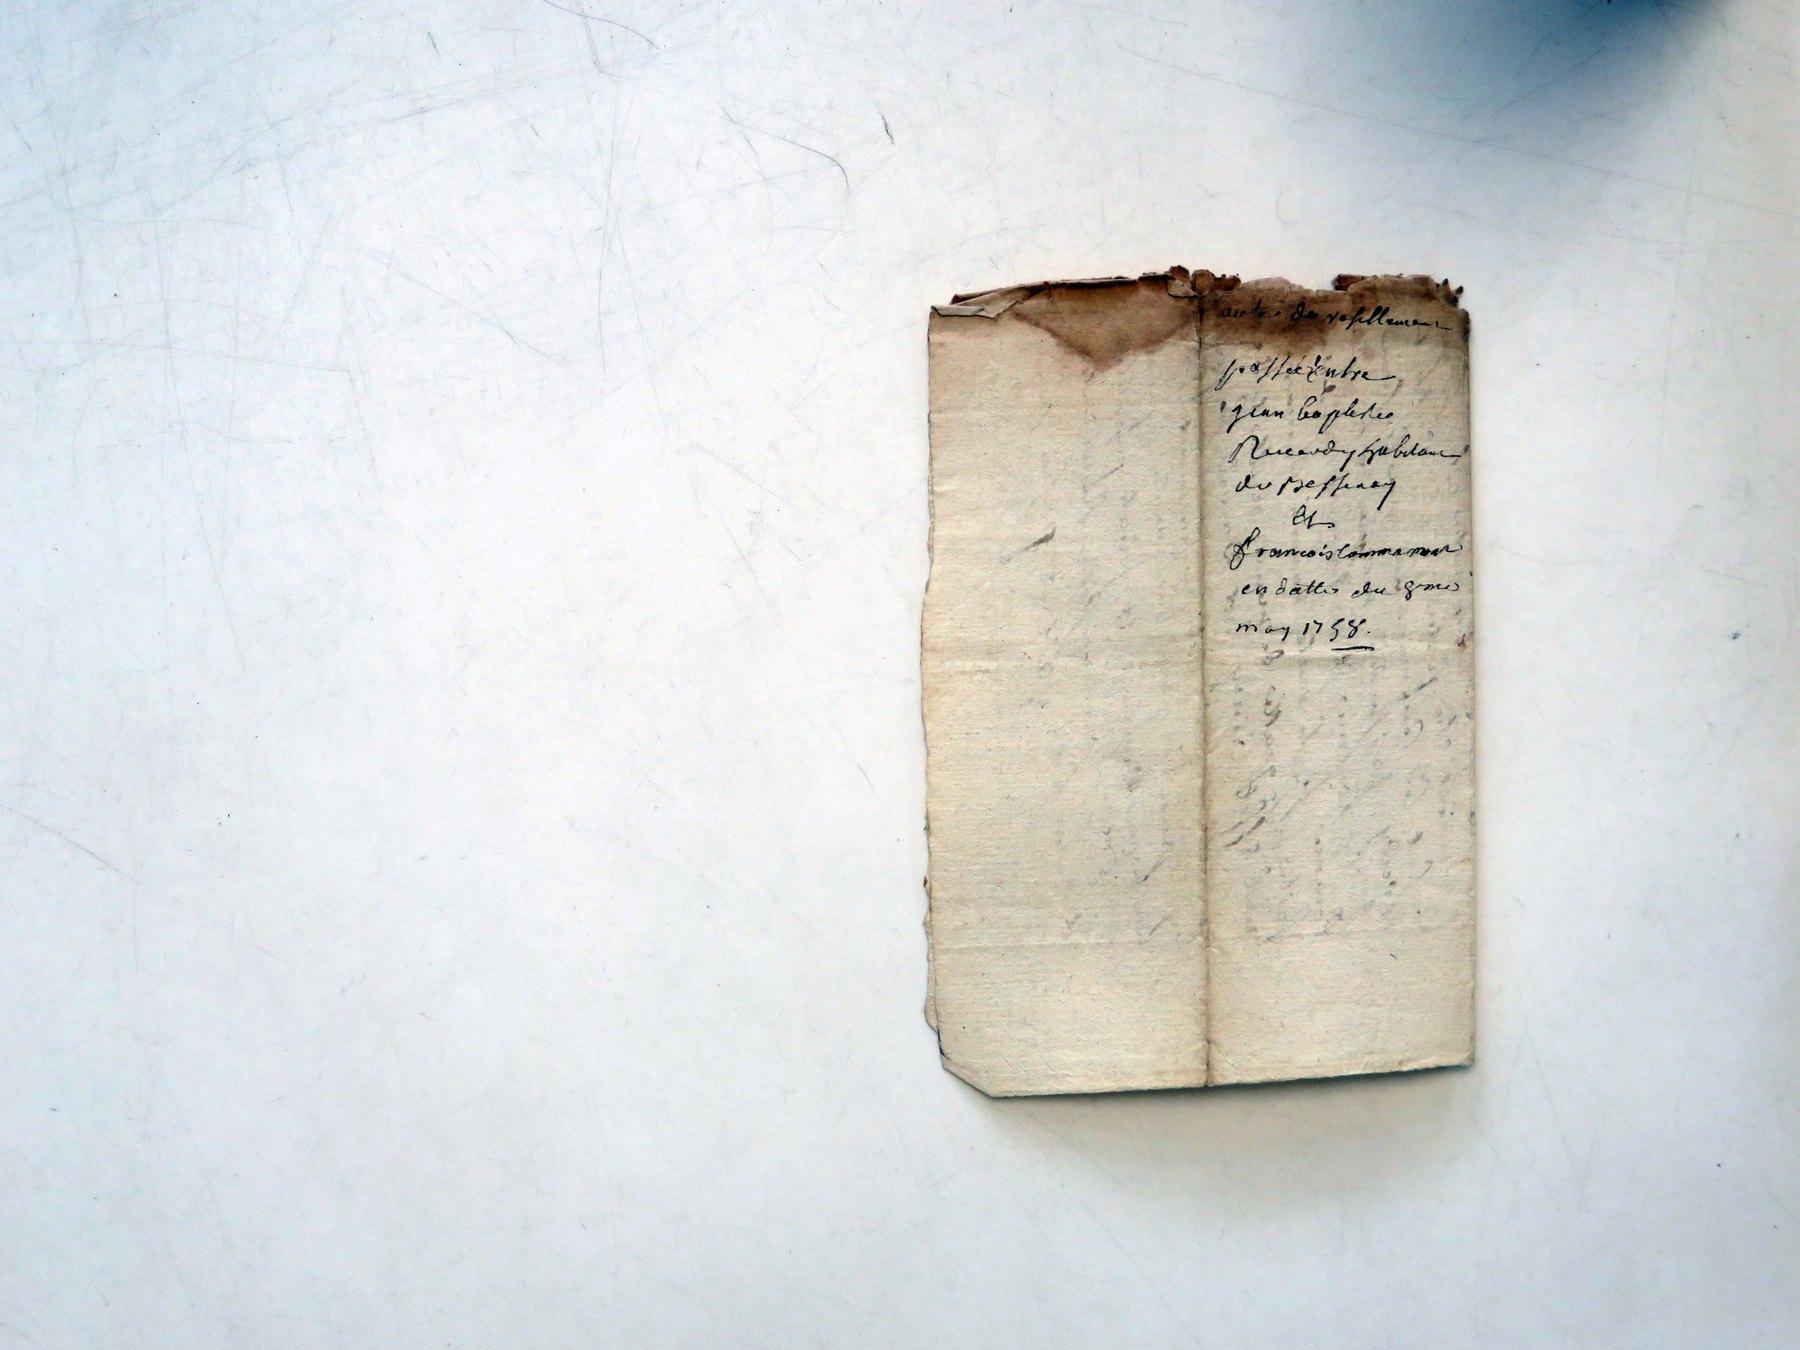 acte de resillement
passée entre
jean baptiste
habitant
de Bessenay
Et
francois Commarmot
en datte du 9me
may 1758.